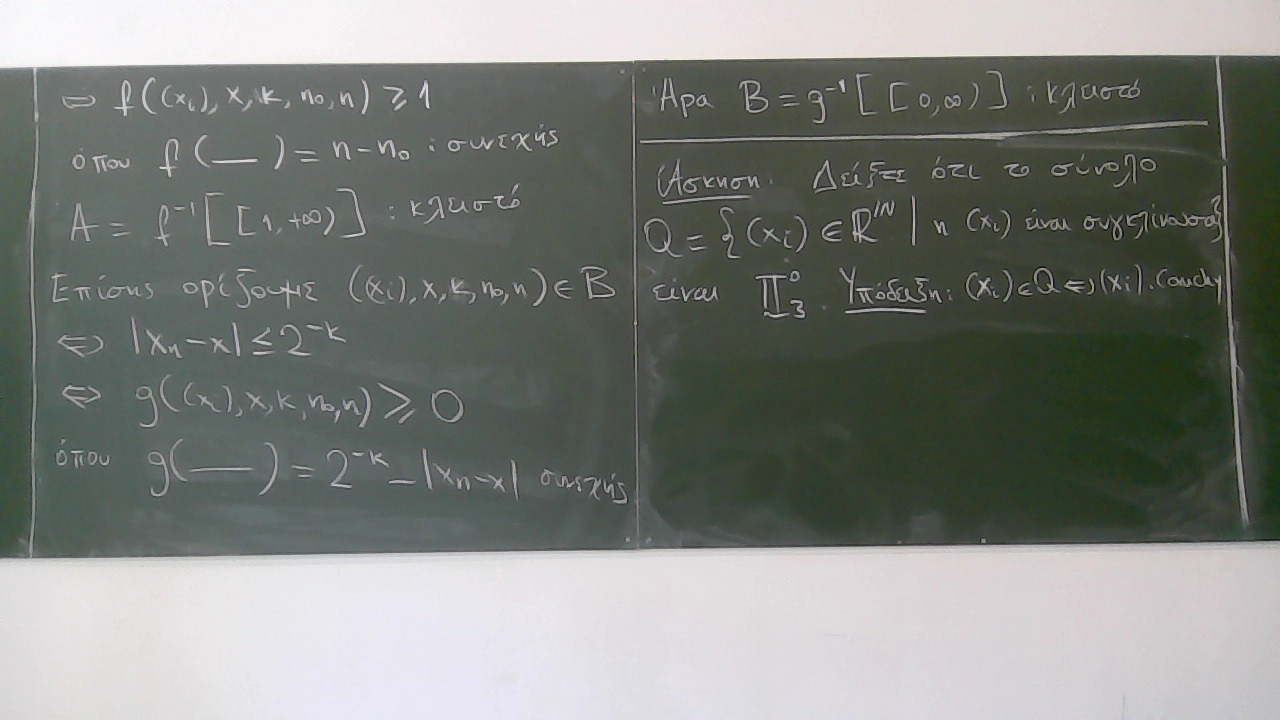 ⇔ f((xᵢ), x, k, n₀, n) ≥ 1
όπου f(—) = n − n₀ : συνεχής
A = f⁻¹[[1, +∞)] : κλειστό
Επίσης ορίζουμε ((xᵢ), x, k, n₀, n) ∈ B
⇔ |xₙ − x| ≤ 2⁻ᵏ
⇔ g((xᵢ), x, k, n₀, n) ≥ 0
όπου g(—) = 2⁻ᵏ − |xₙ − x| συνεχής
Άρα B = g⁻¹[[0, ∞)] : κλειστό
Άσκηση. Δείξτε ότι το σύνολο
Q = {(xᵢ) ∈ ℝ^ℕ | η (xᵢ) είναι συγκλίνουσα}
είναι Π⁰₃. Υπόδειξη: (xᵢ) ∈ Q ⇔ (xᵢ). Cauchy